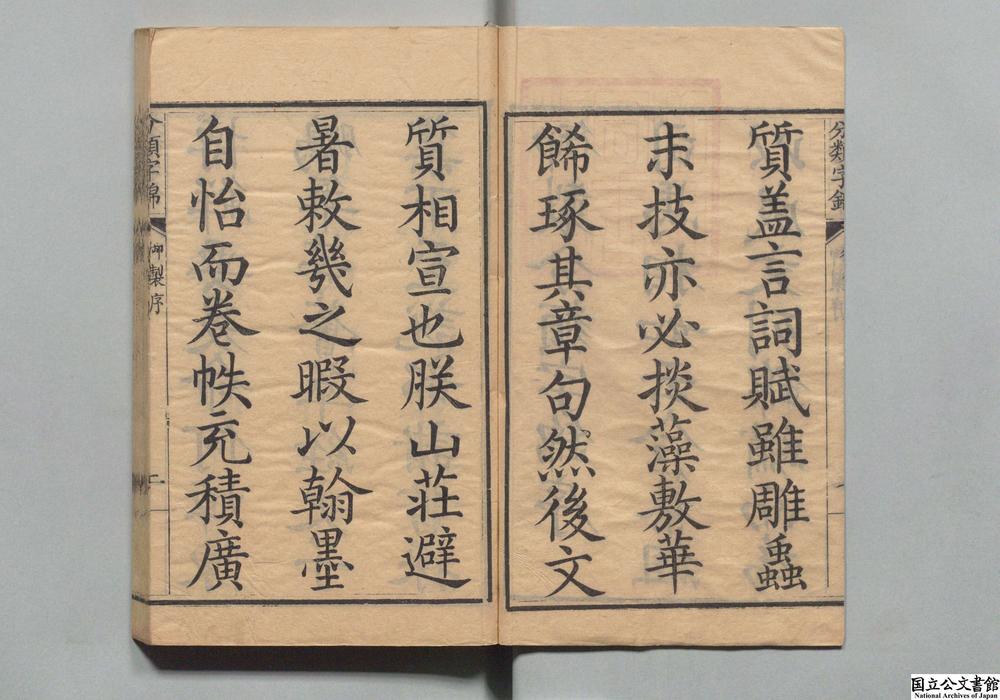 分類字錦
質蓋言詞賦雖雕蟲
末技亦必掞藻敷華
餙琢其章句然後文
質相宣也朕山莊避
暑敕幾之暇以翰墨
自怡而卷帙充積廣
分類字錦
御製序
二
国立公文書館
National Archives of Japan